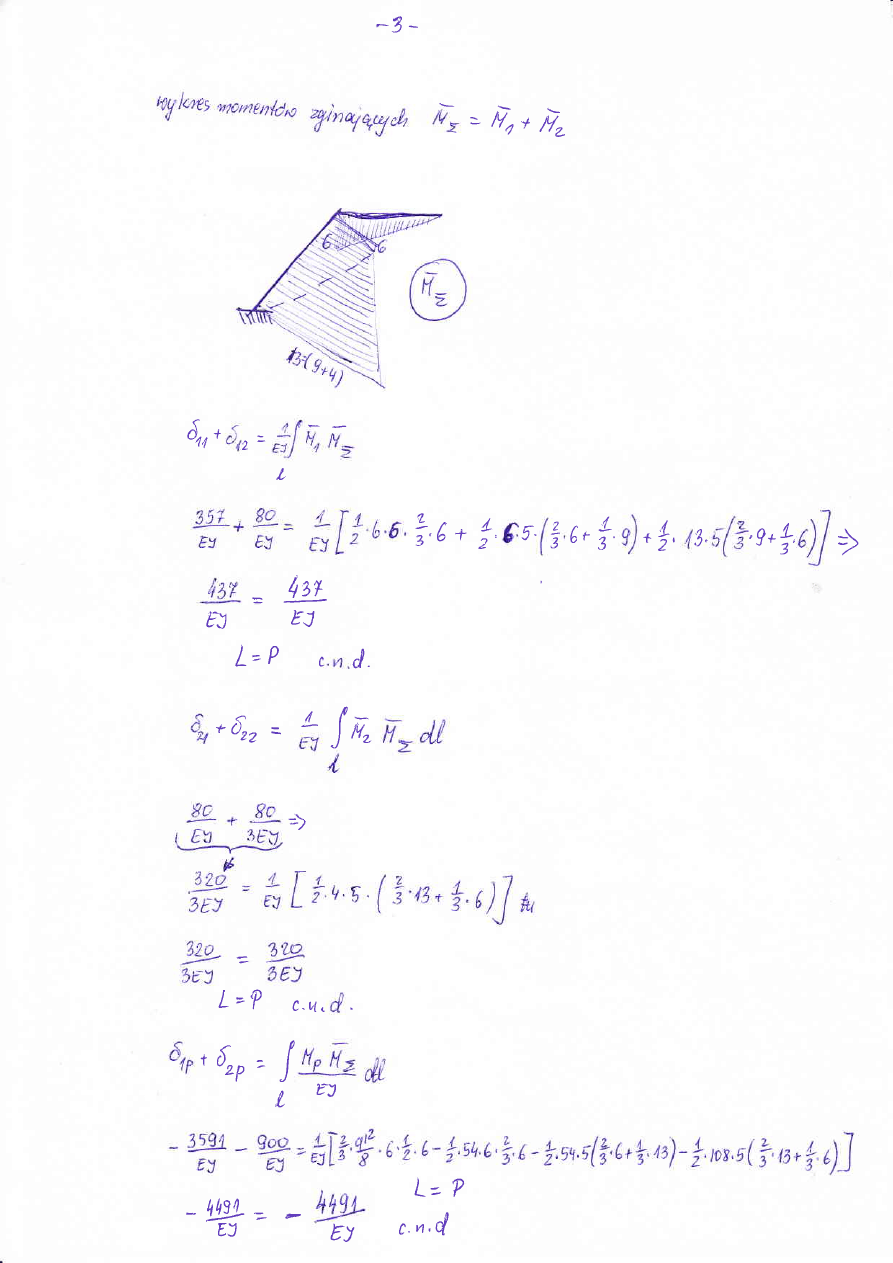 -3-
wykres momentów zginających M̄_Σ = M̄₁ + M̄₂
6 6
M̄_Σ
13=(9+4)
δ₁₁ + δ₁₂ = 1/EJ ∫_l M̄₁ M̄_Σ
357/EJ + 80/EJ = 1/EJ [1/2·6·6·2/3·6 + 1/2·6·5·(2/3·6+1/3·9) + 1/2·13·5(2/3·9+1/3·6)] ⇒
437/EJ = 437/EJ
L=P c.n.d.
δ₂₁ + δ₂₂ = 1/EJ ∫_l M̄₂ M̄_Σ dl
80/EJ + 80/3EJ ⇒
320/3EJ = 1/EJ [1/2·4·5·(2/3·13+1/3·6)]
320/3EJ = 320/3EJ
L=P c.n.d.
δ₁P + δ₂P = ∫_l M_P M̄_Σ/EJ dl
- 3591/EJ - 900/EJ = 1/EJ [2/3·ql²/8·6·1/2·6 - 1/2·54·6·2/3·6 - 1/2·54·5(2/3·6+1/3·13) - 1/2·108·5(2/3·13+1/3·6)]
- 4491/EJ = - 4491/EJ L=P
c.n.d